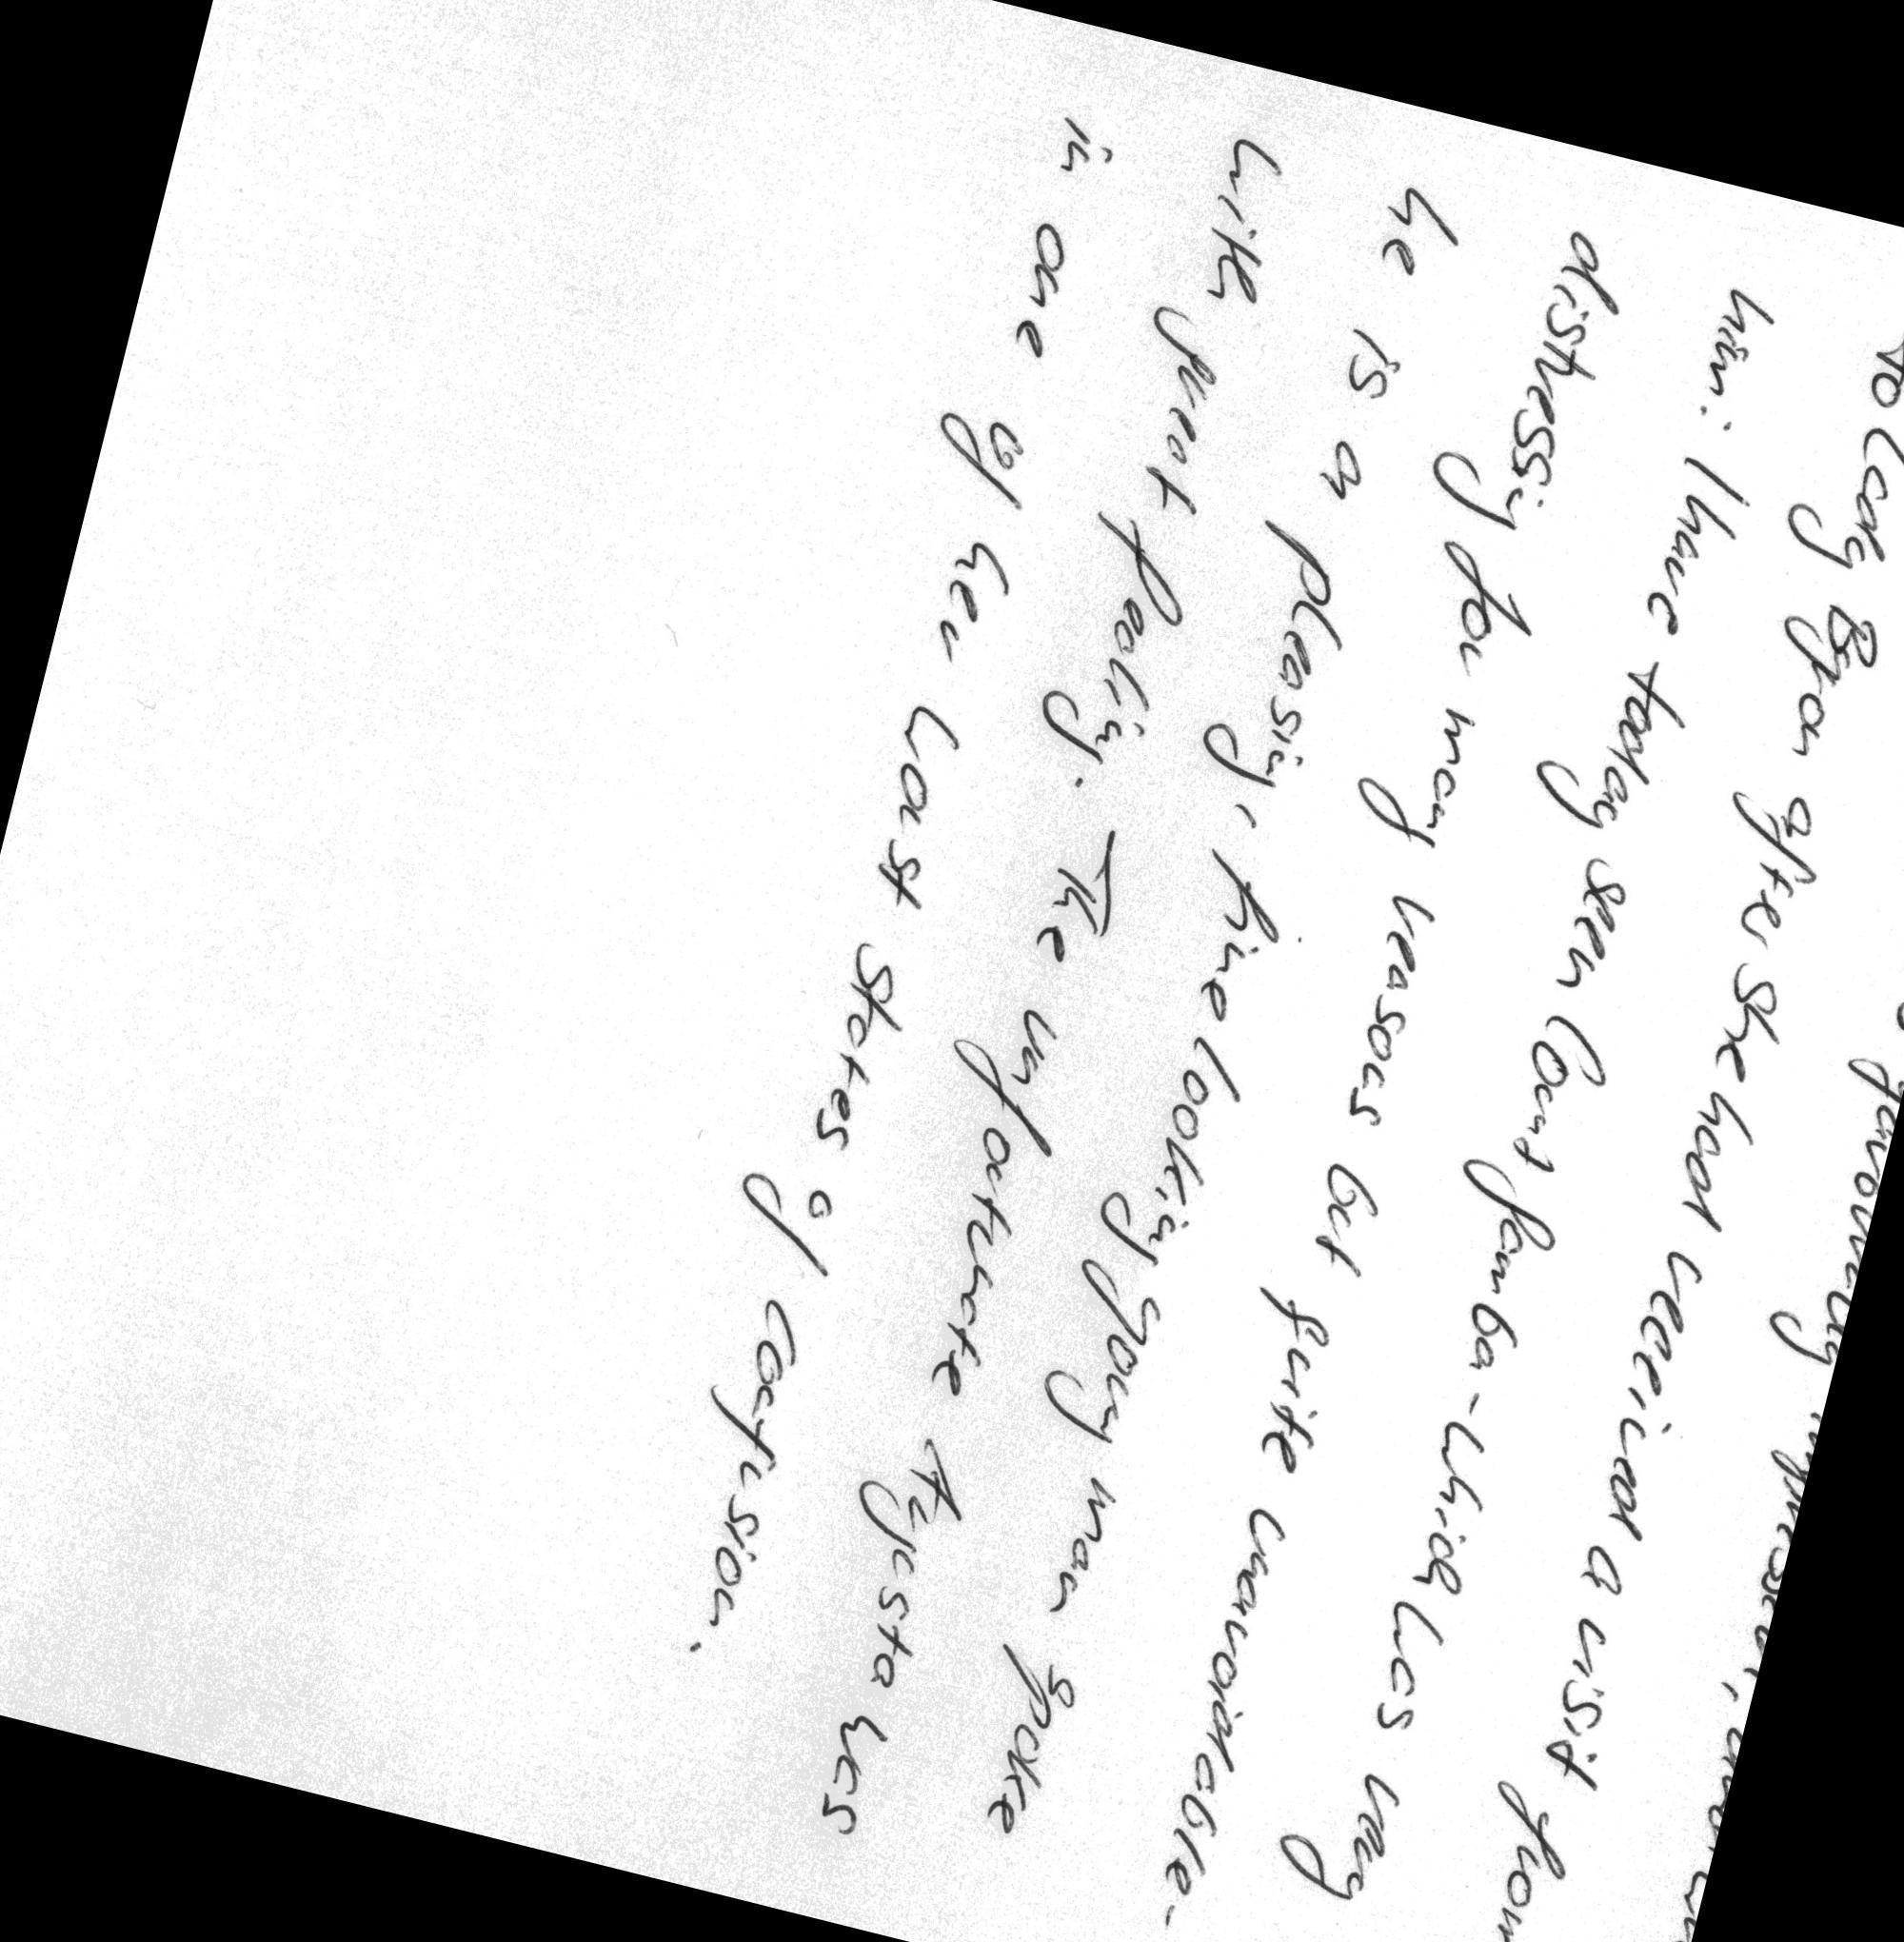 favourably
to Lady Byron after she had received a visit from
him: I have today seen Count Gamba - which was very
distressing for many reasons but quite unavoidable -
he is a pleasing, fine looking young man spoke
with great feeling. The unfortunate Augusta was
in one of her worst states of confusion.